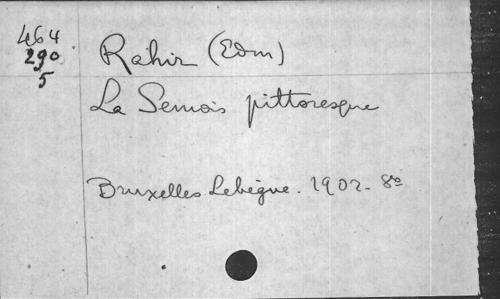 464
290
5
Rahir (Edm)
La Semois pittoresque
Bruxelles Lebègue. 1902. 8vo